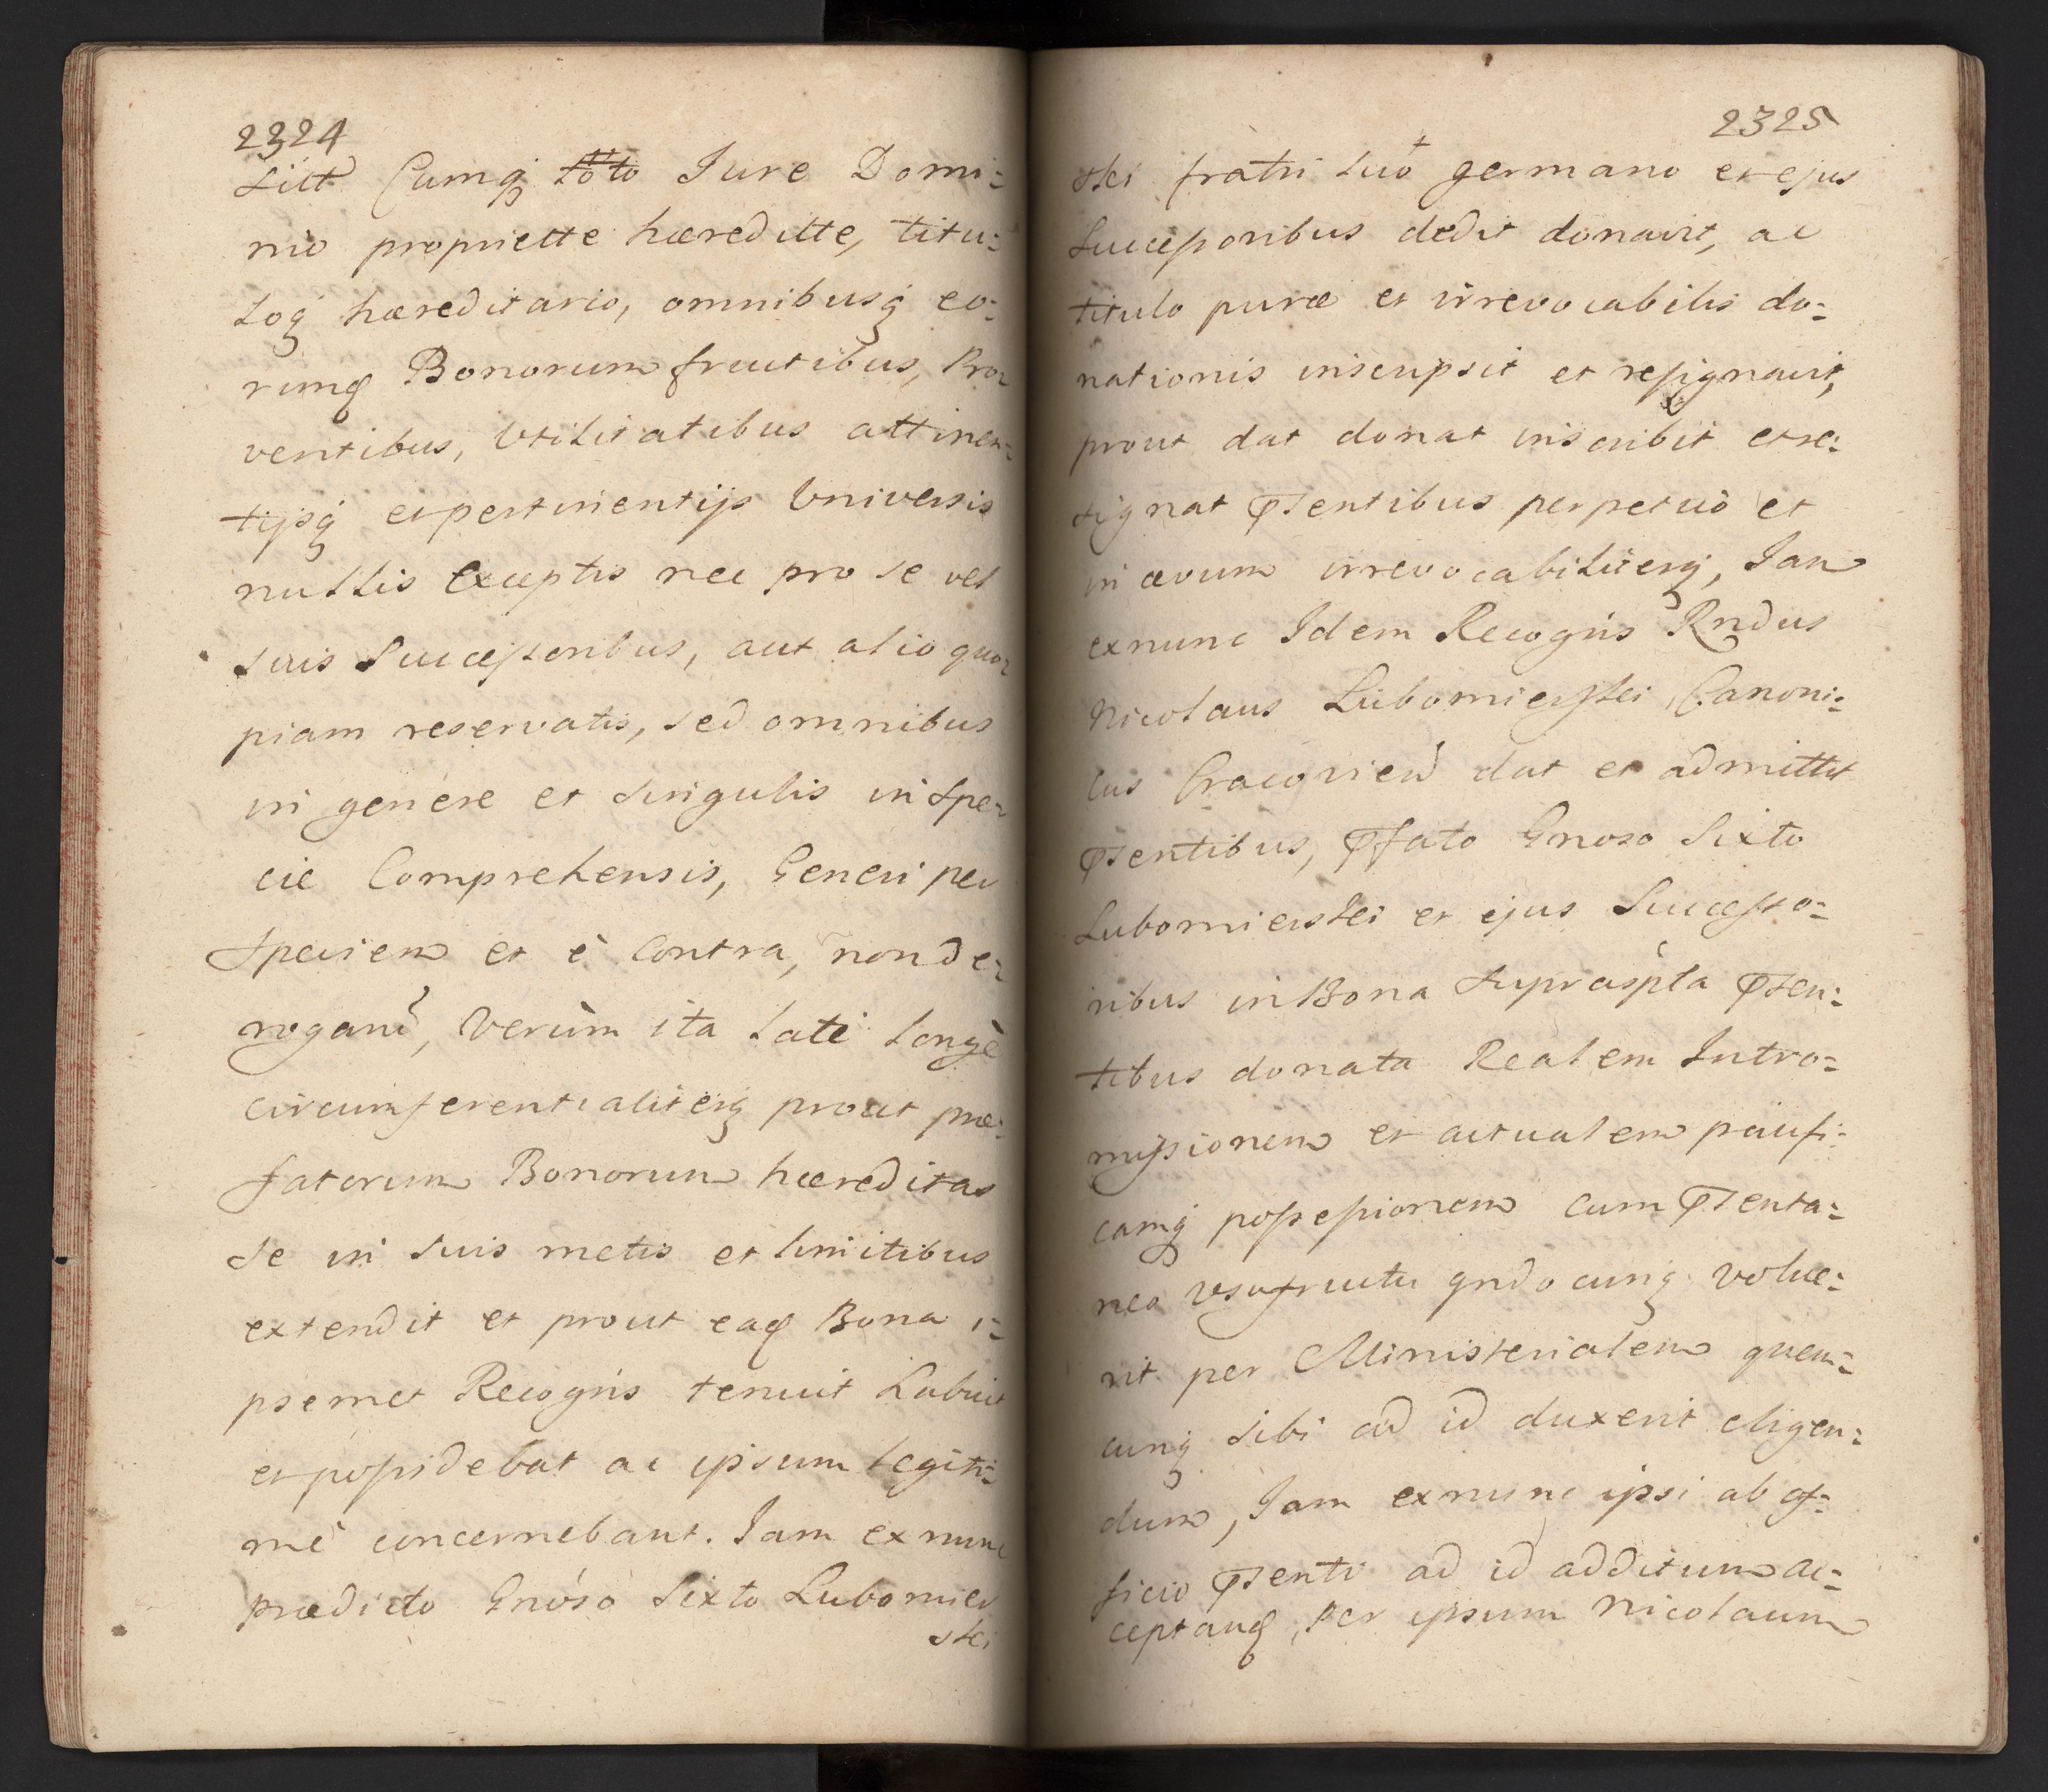 2324
sitt Cumq́ toto Jure Domi:
nio propriette hæreditte, titu:
loq́ hæreditario, omnibusq́ eo:
rund Bonorum fructibus, Pro:
ventibus, Vtilitatibus attinen:
tijsq́ et pertinentijs Vniversis
nullis Exceptis nec pro se vel
suis Successoribus, aut alio quo:
piam reservatis, sed omnibus
in genere et singulis in spe:
cie Comprehensis, Generi per
Speciem et è Contra, non de:
rogand, Verùm ita latè longè
circumferentialiterq́ prout præ:
fatorum Bonorum hæreditas
se in suis metis et limitibus
extendit et prout ead Bona i:
psemet Recogńs tenuit habuit
et possidebat ac ipsum legiti:
mè concernebant. Jam ex nunc
prædicto Gnoso Sixto Lubomier
skei
2325
skei fratri suo + germano et ejus
Successoribus dedit donavit, ac
titulo puræ et irrevocabilis do:
nationis inscripsit et resignavit,
prout dat donat inscribit et re:
signat Psentibus perpetuò et
in ævum irrevocabiliterq́, Jam
ex nunc Idem Recogńs Rndus
Nicolaus Lubomierskei Canoni:
cus Cracovien dat et admittit
Psentibus, Pfato Gnoso Sixto
Lubomierskei et ejus Successo:
ribus in Bona supraspta Psen:
tibus donata Realem Intro:
missionem et actualem pacifi:
camq́ possessionem cum Psenta:
neo vsufructu qndocunq́ volue:
rit per Ministerialem quem:
cunq́ sibi ad id duxerit eligen:
dum, Jam ex nunc ipsi ab of:
ficio Psenti ad id additum ac:
ceptand, per ipsum Nicolaum